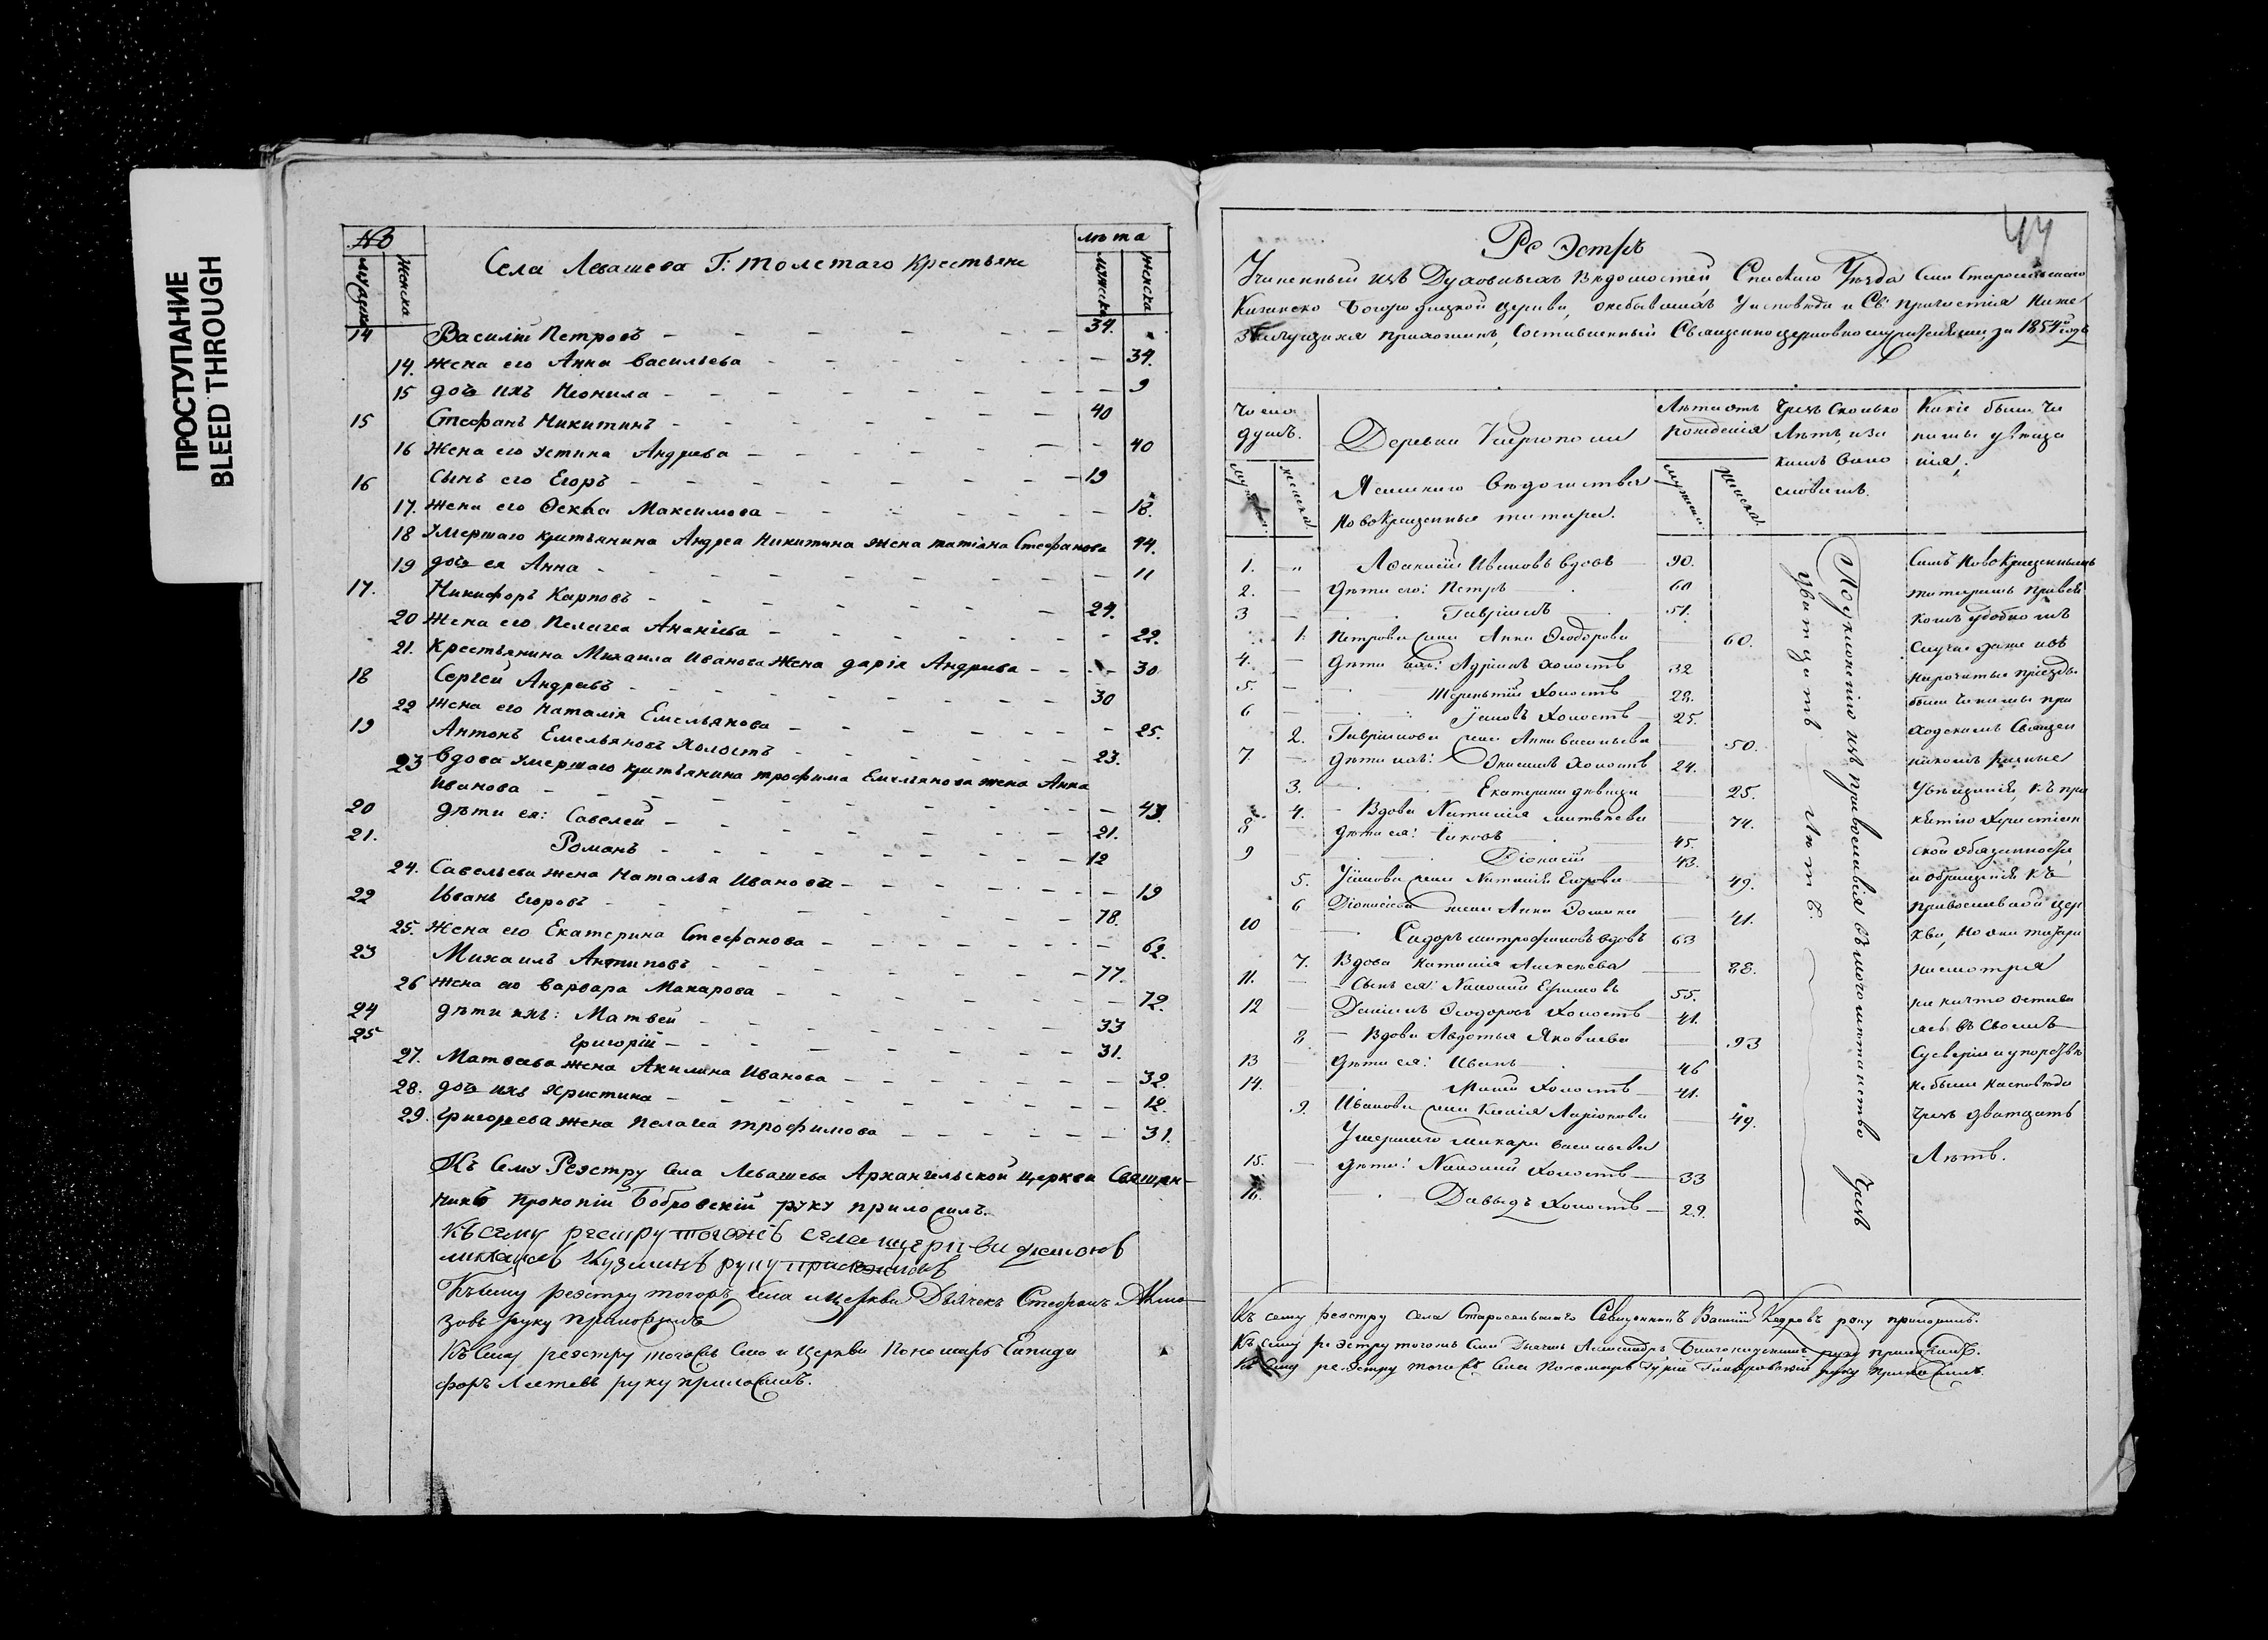 ПРОСТУПАНИЕ
BLEED THROUGH
№
Села Левашева Г: Толстаго Крестьяне
лѣта
мужска
женска
мужска
женска
14 Василій Петровъ 34.
14. жена его Анна Васильева 34.
15 дочь ихъ Неонила 9
15 Стефанъ Никитинъ 40
16 жена его Устина Андрѣева 40
16 Сынъ его Егоръ 19
17. жена его Ѳекла Максимова 18.
18 Умершаго крѣтьянина Андреа Никитина жена татіана Стефанова 44.
19 дочь ея Анна 11
17. Никифоръ Карповъ 24.
20 жена его Пелагея Ананіева 22.
21. Крестьянина Михаила Иванова жена дарія Андрѣева 30
18 Сергей Андрѣевъ 30
22 жена его Наталія Емельянова 25.
19 Антонъ Емельяновъ Холостъ 23.
23 Вдова умершаго крѣтьянина трофима Емельянова жена Анна
Иванова 43.
20 дѣти ея: Савелей 21.
21. Романъ 12
24. Савельева жена Наталья Иванова 19
22 Иванъ Егоровъ 78.
25. жена его Екатерина Стефанова 62.
23 Михаилъ Антиповъ 77.
26 жена его варвара Макарова 72.
24 дѣти ихъ: Матвей 33
25 Григорій 31.
27. Матвѣева жена Акилина Иванова 32.
28. дочь ихъ Христина 12.
29. Григорьева жена Пелагея трофимова 31.
Къ Сему Реэстру Села Левашева Архангельской церкви Священ-
никъ Прокопій Бобровскій руку приложилъ.
Къ сему реестру тогожъ села церкви диаконъ
михаилъ Кузминъ руку приложилъ
Къ сему реэстру тогожъ села и церкви Дьячекъ Стефанъ Алма-
зовъ руку приложилъ
Къ сему реэстру тогожъ Села и Церкви Пономарь Епиди
форъ руку приложилъ.
44
Реэстръ
Учиненный изъ Духовныхъ Вѣдомостей, Спаскаго Уѣзда Села Старосельскаго
Казанско Богородицкой церкви, о небывшихъ у исповѣди и Св. причастія ниже
слѣдующихъ прихожанъ, Составленный Священноцерковнослужителями, за 1854й годъ
Число
душъ.
мужска.
женска.
Деревни
Ясашнаго вѣдомства
новокрещенные татары.
Лѣта отъ
рожденія
мужска.
женска.
Чрезъ Сколько
Лѣтъ, и за
какимъ вино
словіемъ.
Какіе были чи
нимы увѣща
нія.
1. „ Аѳанасій Ивановъ вдовъ 90.
2. дѣти его: Петръ 60
3 Гавріилъ 51.
1. Петрова жена Анна Ѳеодорова 60.
4. дѣти ихъ: Адріанъ холостъ 32
5. Терентій Холостъ 28.
6 Іаковъ Холостъ 25.
2. Гавріилова жена Анна Васильева 50.
7. дѣти ихъ: Онисимъ Холостъ 24.
3. Екатерина дѣвица 25.
4. Вдова Наталія Матвѣева 74.
8 дѣти ея: Іаковъ 45.
9 Діонисій 43.
5. Іакова жена Наталія Егорова 49.
6 Діонисіева жена Анна Ѳомина 41.
10 Сидоръ митрофановъ вдовъ 63
7. Вдова Наталія Алексѣева 88.
11. Сынъ ея: Николай Ефимовъ 55.
12 Даніилъ Ѳеодоровъ Холостъ 41.
8 Вдова Авдотья Яковлева 93
13 дѣти ея: Иванъ 46
14. Холостъ 41.
9. Иванова жена Ларіонова 49.
Умершаго макара васильева
15. дѣти: Николай Холостъ 33
16. Давыдъ Холостъ 29.
По уклоненію изъ православія въ магометанство Чрезъ
двадцать лѣтъ.
Симъ Новокрещеннымъ
татарамъ при вся
комъ удобномъ
случаѣ даже изъ
нарочитыя пріезды
были чинимы при
ходскимъ Священ
никомъ разные
увѣщанія, къ при
нятію христіан
ской обязанности
и обращенія къ
православной цер
кви, Но они татары
несмотря
ни на что остава
ясь въ своемъ
суеверіи и упорствѣ
не были на исповѣди
Чрезъ дватцать
Лѣтъ.
Къ сему реэстру села Старосельскаго Священникъ Василій Кедровъ руку приложилъ.
Къ сему реэстру тогожъ Села Дьячекъ Александръ руку приложилъ.
Къ сему реэстру тогожъ Села Пономарь Гурій руку приложилъ.